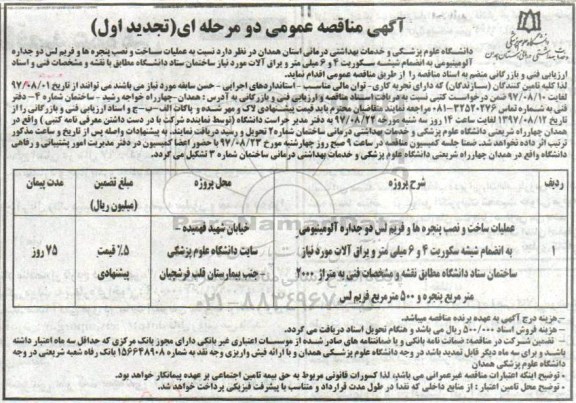 آگهی مناقصه عمومی دو مرحله ای(تجدید اول)
دانشگاه علوم پزشکی و خدمات بهداشتی درمانی استان همدان در نظر دارد نسبت به عملیات ساخت و نصب پنجره ها و فریم لس دو جداره
آلومینیومی به انضمام شیشه سکوریت ۴ و ۶ میلی متر و یراق آلات مورد نیاز ساختمان ستاد دانشگاه مطابق با نقشه و مشخصات فنی و اسناد
ارزیابی فنی و بازرگانی منضم به اسناد مناقصه را از طریق مناقصه عمومی اقدام نماید.
لذا کلیه تامین کنندگان (سازندگان) که دارای تجربه کاری - توان مالی مناسب - استانداردهای اجرایی - حسن سابقه مورد نیاز می باشند می توانند از تاریخ ۹۷/۰۸/۰۱
لغایت ۹۷/۰۸/۱۰ ضمن درخواست کتبی نسبت به دریافت اسناد مناقصه و ارزیابی فنی و بازرگانی به آدرس : همدان-چهارراه خواجه رشید - ساختمان شماره ۴ - دفتر
فنی به شماره تماس ۰۸۱-۳۳۵۲۰۳۷۶ مراجعه نمایند. متقاضیان محترم باید قیمت پیشنهادی لاک و مهر شده و پاکات الف-ب-ج و اسناد ارزیابی فنی و بازرگانی را از
تاریخ ۱۳۹۷/۰۸/۱۲ لغایت ساعت ۱۴ روز سه شنبه مورخه ۹۷/۰۸/۲۲ به دفتر مدیر حراست دانشگاه (توسط نماینده شرکت با در دست داشتن معرفی نامه کتبی ) واقع در
همدان چهارراه شریعتی دانشگاه علوم پزشکی و خدمات بهداشتی درمانی ساختمان شماره ۲ تحویل و رسید دریافت نمایند. به پیشنهادات واصله پس از تاریخ و ساعت مذکور
ترتیب اثر داده نخواهد شد. ضمنا جلسه کمیسیون مناقصه در ساعت ۹ صبح روز چهارشنبه مورخ ۹۷/۰۸/۲۳ با حضور اعضا کمیسیون در دفتر مدیریت امور پشتیبانی و رفاهی
دانشگاه واقع در همدان چهارراه شریعتی دانشگاه علوم پزشکی و خدمات بهداشتی درمانی ساختمان شماره ۳ تشکیل می گردد.
ردیف شرح پروژه محل پروژه مبلغ تضمین (میلیون ریال) مدت پیمان
۱ عملیات ساخت و نصب پنجره ها و فریم لس دو جداره آلومینیومی
به انضمام شیشه سکوریت ۴ و ۶ میلی متر و یراق آلات مورد نیاز
ساختمان ستاد دانشگاه مطابق نقشه و مشخصات فنی به متراژ ۲۰۰۰
متر مربع پنجره و ۵۰۰ مترمربع فریم لس
خیابان شهید فهمیده -
سایت دانشگاه علوم پزشکی
- جنب بیمارستان قلب فرشچیان
۵٪ قیمت
پیشنهادی
۷۵ روز
- هزینه درج آگهی به عهده برنده مناقصه میباشد.
- هزینه فروش اسناد ۵۰۰/۰۰۰ ریال می باشد و هنگام تحویل اسناد دریافت می گردد.
- تضمین شرکت در مناقصه: ضمانت نامه بانکی و یا ضمانتنامه های صادر شده از موسسات اعتباری غیر بانکی دارای مجوز بانک مرکزی که حداقل سه ماه اعتبار داشته
باشند و برای سه ماه دیگر قابل تمدید باشد در وجه دانشگاه علوم پزشکی همدان و یا ارائه فیش واریزی وجه نقد به شماره ۱۵۶۶۴۸۹۰۸ بانک رفاه شعبه شریعتی در وجه
دانشگاه علوم پزشکی همدان
- توضیح اینکه اعتبارات مناقصه غیرعمرانی می باشد، لذا کسورات قانونی مربوط به حق بیمه تامین اجتماعی بر عهده پیمانکار خواهد بود.
- توضیح محل تامین اعتبار : از منابع داخلی که نقدا در طول مدت قرارداد و متناسب با پیشرفت فیزیکی پرداخت خواهد شد.